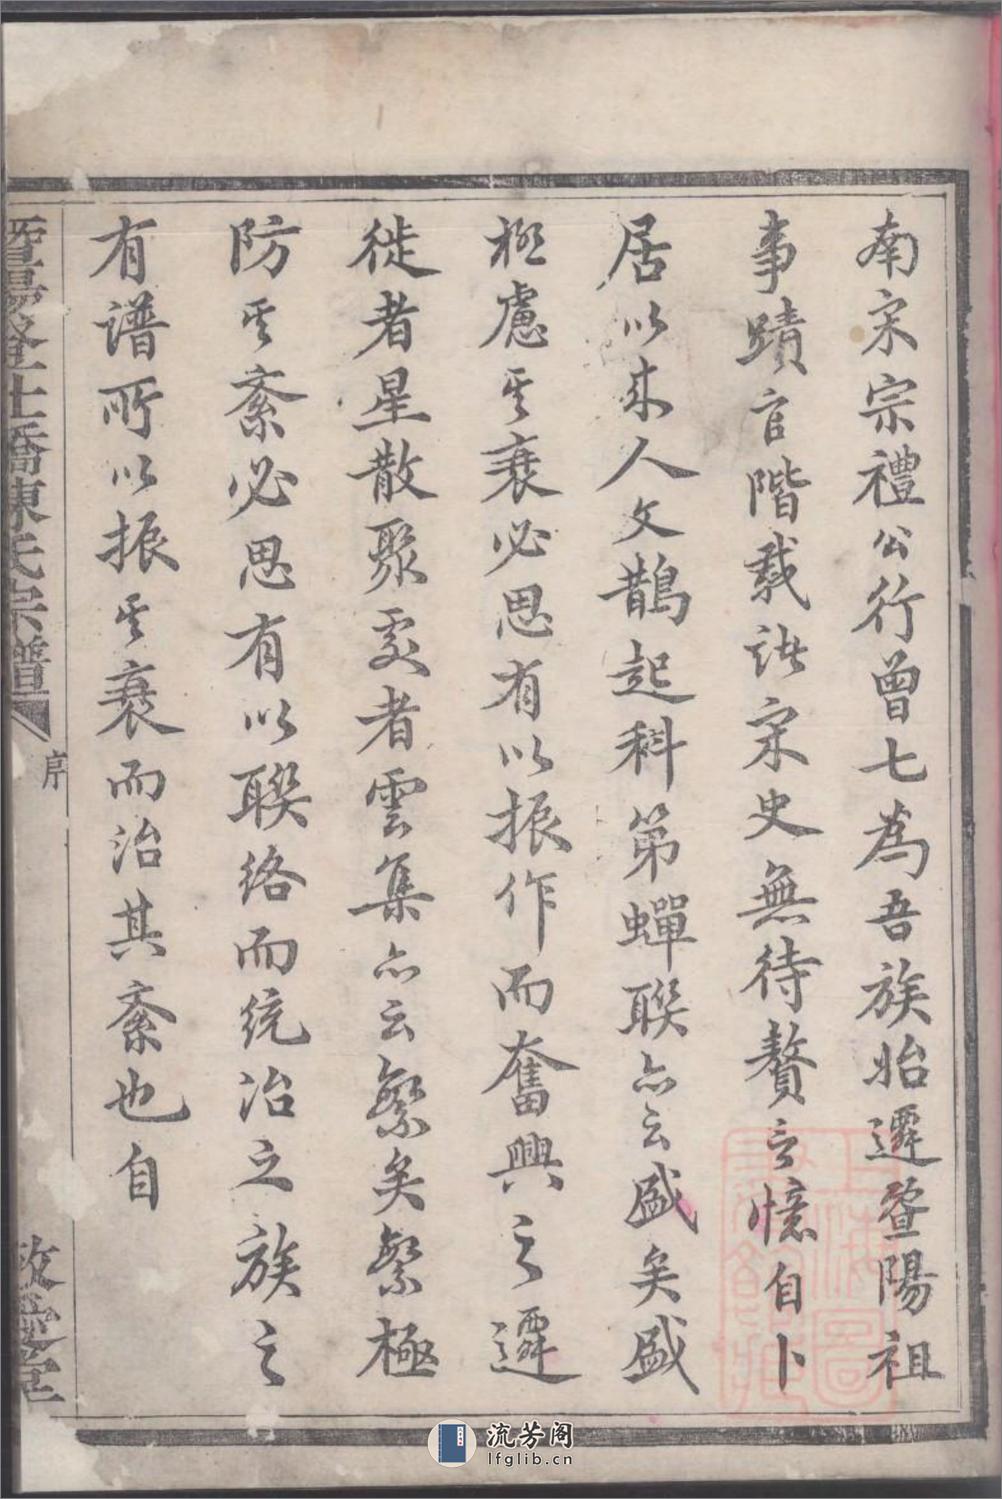 南宋宗禮公行曾七為吾族始遷暨陽祖
事蹟官階載諸宋史無待贅言憶自卜
居以來人文鵲起科第蟬聯亦云盛矣盛
極慮其衰必思有以振作而奮興之遷
徙者星散聚處者雲集亦云繁矣繁極
防其紊必思有以聯絡而統治之族之
有譜所以振其衰而治其紊也自
暨陽 土橋陳氏宗譜
序
堂
上海圖書館藏
流芳阁
lfglib.cn